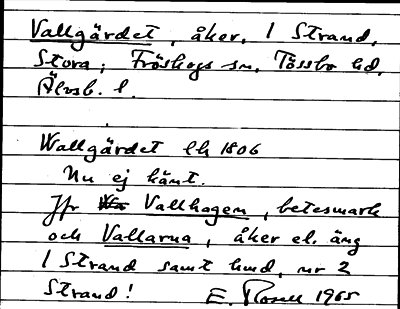 Vallgärdet, åker, 1 Strand,
Stora; Fröskogs sn, Tössbo hd,
Älvsb. l.
Wallgärdet lh 1806
Nu ej känt.
Jfr Vallhagen, betesmark
och Vallarna, åker el. äng
1 Strand samt hmd, nr 2
Strand! E. Rosell 1965